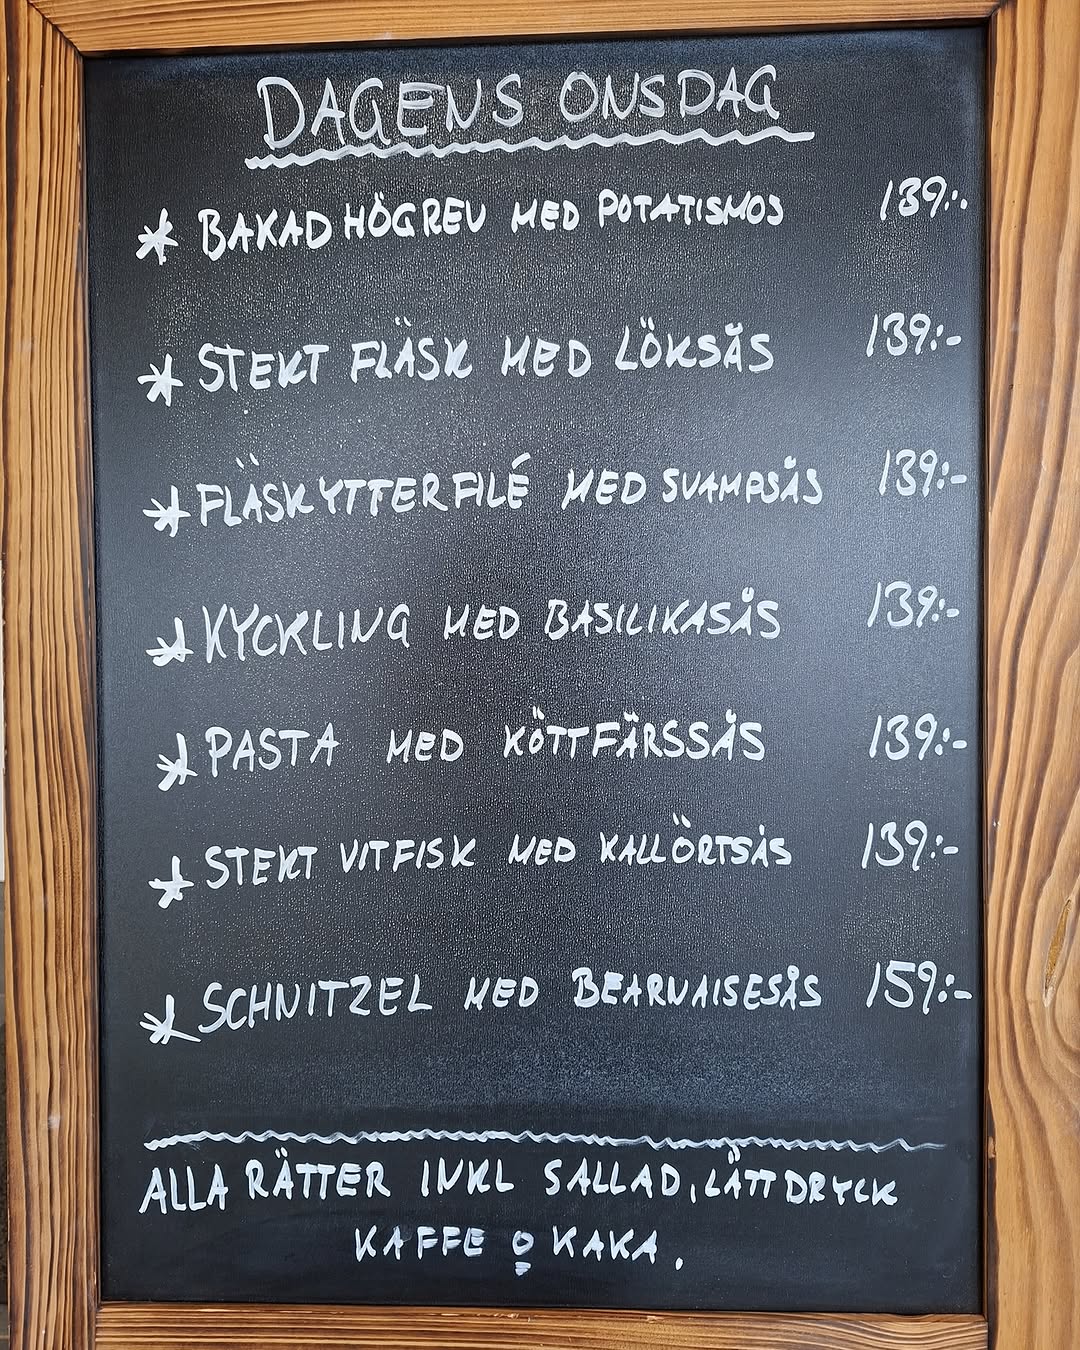 DAGENS ONSDAG
* BAKAD HÖGREV MED POTATISMOS 139:-
* STEKT FLÄSK MED LÖKSÅS 139:-
* FLÄSKYTTERFILÉ MED SVAMPSÅS 139:-
* KYCKLING MED BASILIKASÅS 139:-
* PASTA MED KÖTTFÄRSSÅS 139:-
* STEKT VITFISK MED KALLÖRTSÅS 139:-
* SCHNITZEL MED BEARNAISESÅS 159:-
ALLA RÄTTER INKL SALLAD, LÄTTDRYCK
KAFFE O KAKA.